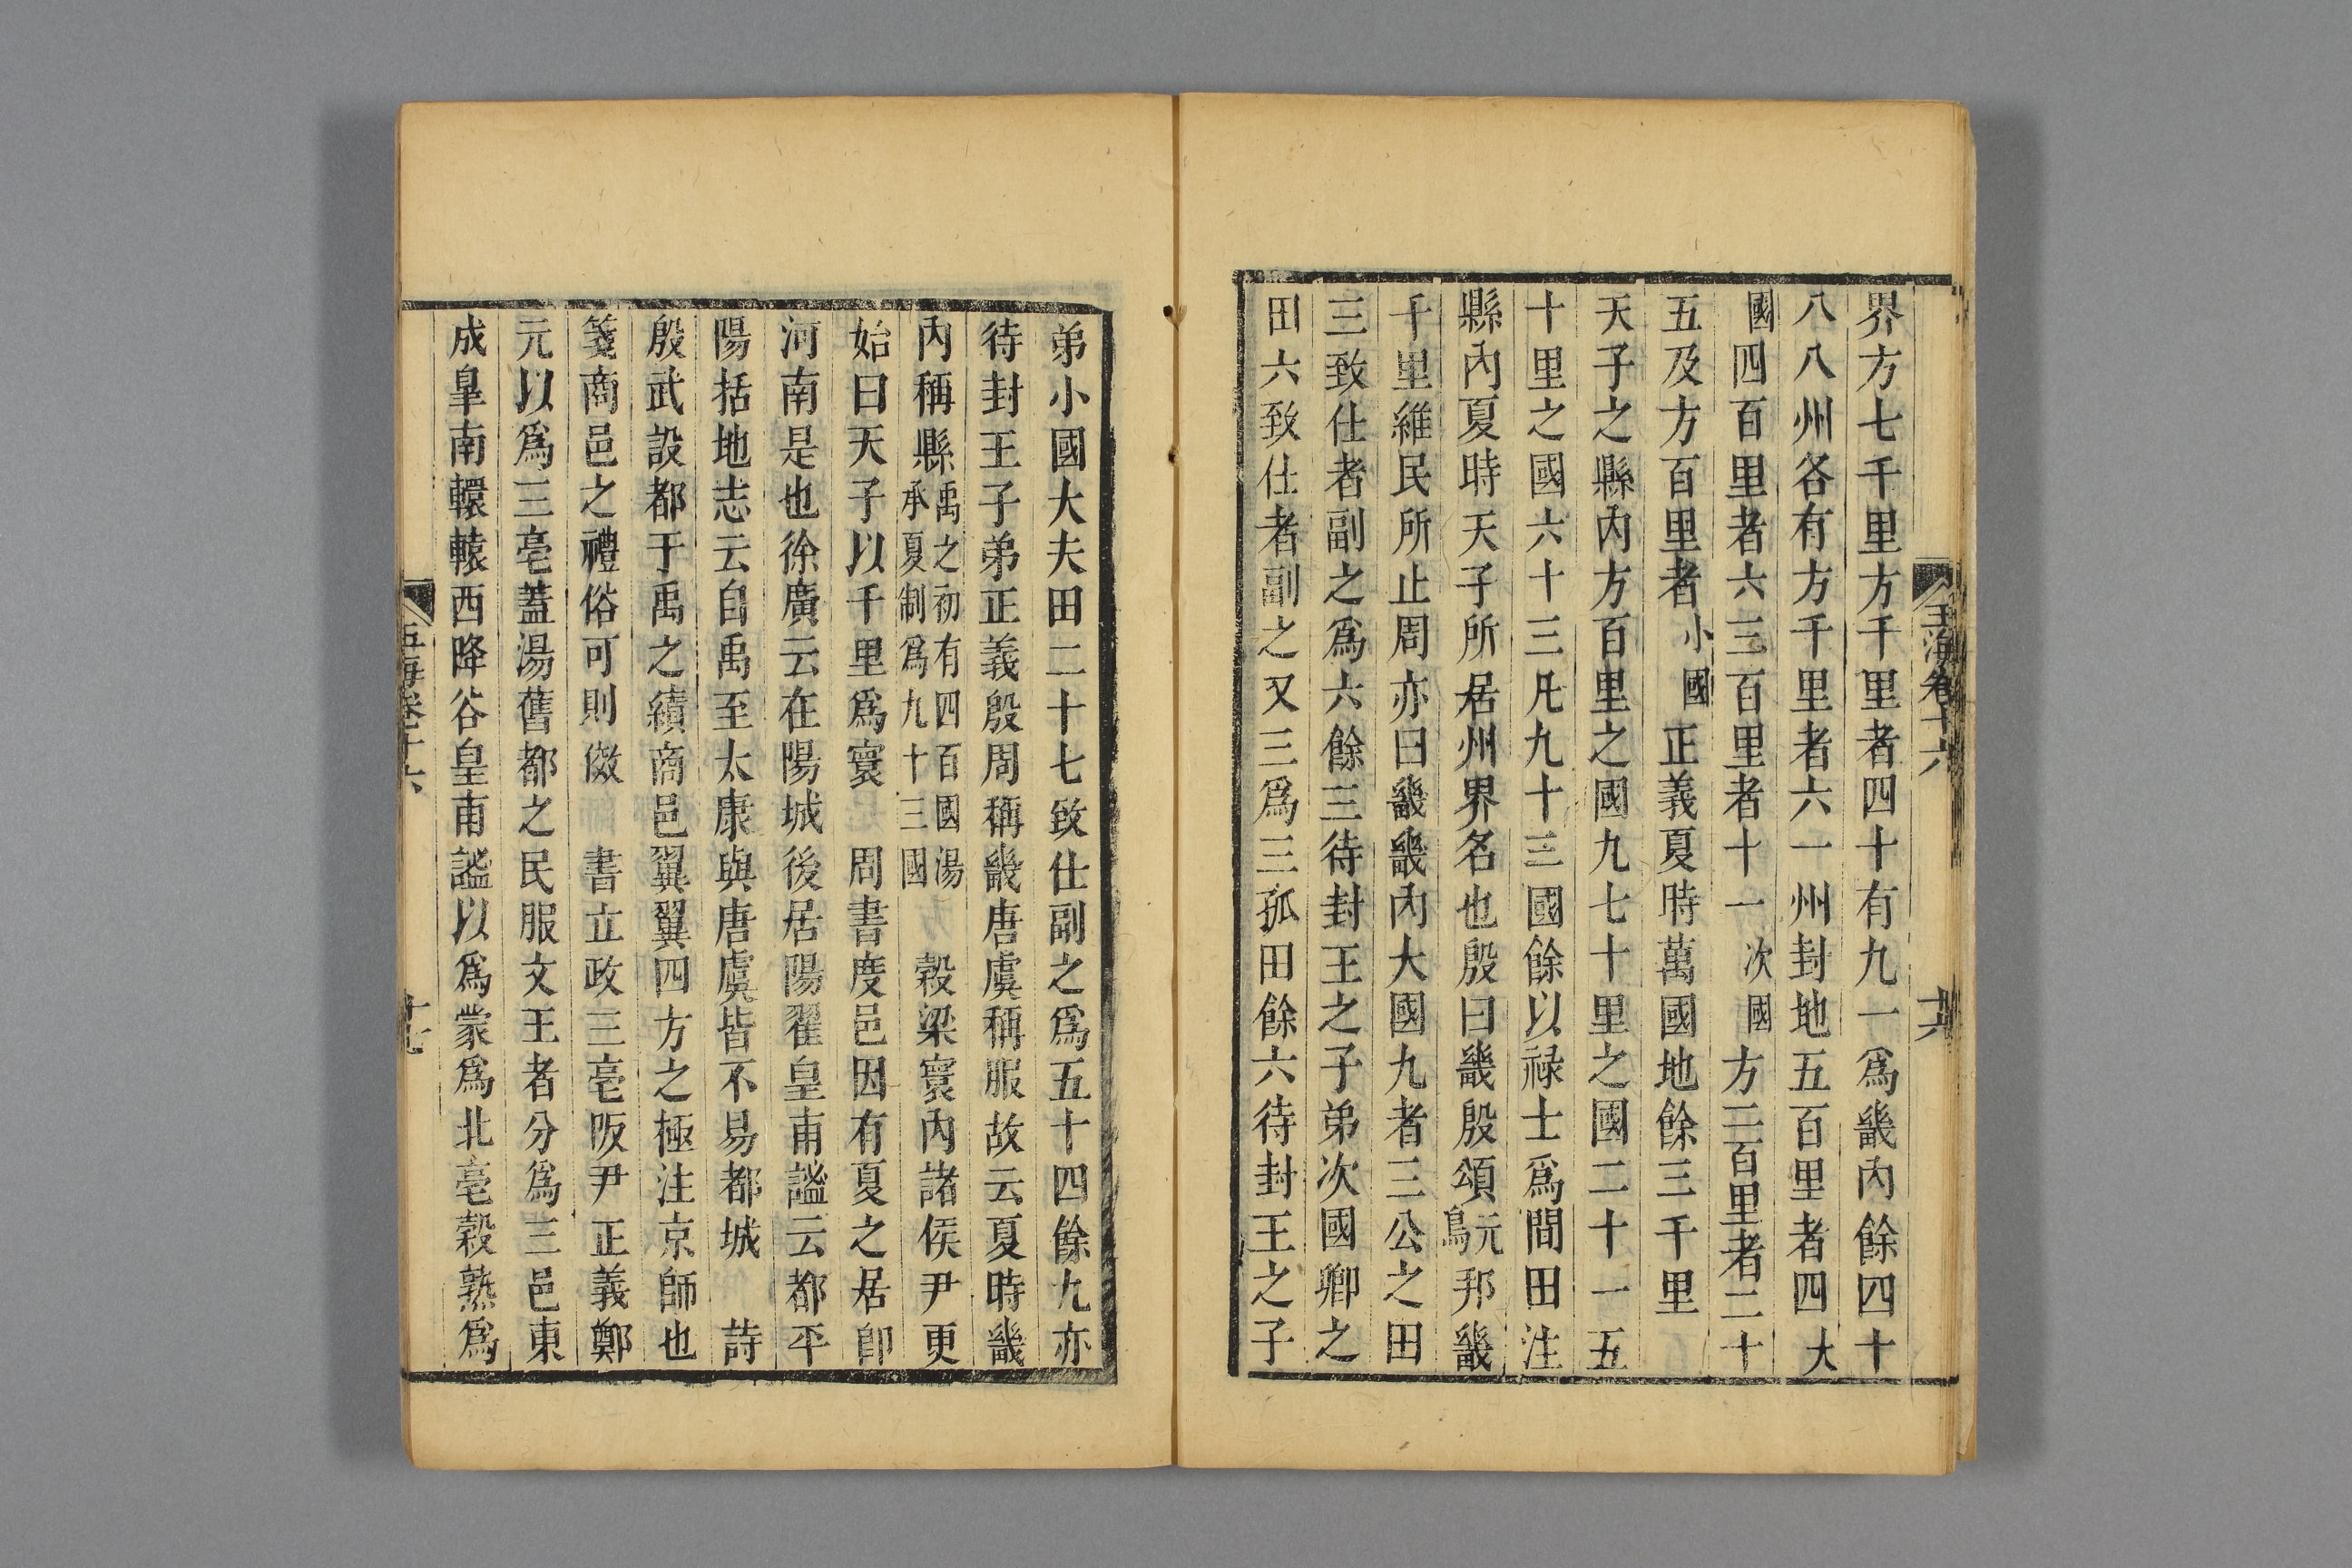 玉海卷十六
十六
界方七千里方千里者四十有九一爲畿內餘四十
八八州各有方千里者六一州封地五百里者四大
國四百里者六三百里者十一次國方二百里者二十
五及方百里者小國正義夏時萬國地餘三千里
天子之縣內方百里之國九七十里之國二十一五
十里之國六十三凡九十三國餘以祿士爲間田注
縣內夏時天子所居州界名也殷曰畿殷頌元鳥邦畿
千里維民所止周亦曰畿畿內大國九者三公之田
三致仕者副之爲六餘三待封王之子弟次國卿之
田六致仕者副之又三爲三孤田餘六待封王之子
弟小國大夫田二十七致仕副之爲五十四餘九亦
待封王子弟正義殷周稱畿唐虞稱服故云夏時畿
內稱縣禹之初有四百國湯承夏制爲九十三國 穀梁寰內諸侯尹更
始曰天子以千里爲寰 周書度邑因有夏之居卽
河南是也徐廣云在陽城後居陽翟皇甫謐云都平
陽括地志云自禹至太康與唐虞皆不易都城 詩
殷武設都于禹之績商邑翼翼四方之極注京師也
箋商邑之禮俗可則傚 書立政三亳阪尹正義鄭
元以爲三亳蓋湯舊都之民服文王者分爲三邑東
成皐南轘轅西降谷皇甫謐以爲蒙爲北亳穀熟爲
玉海卷十六
十七